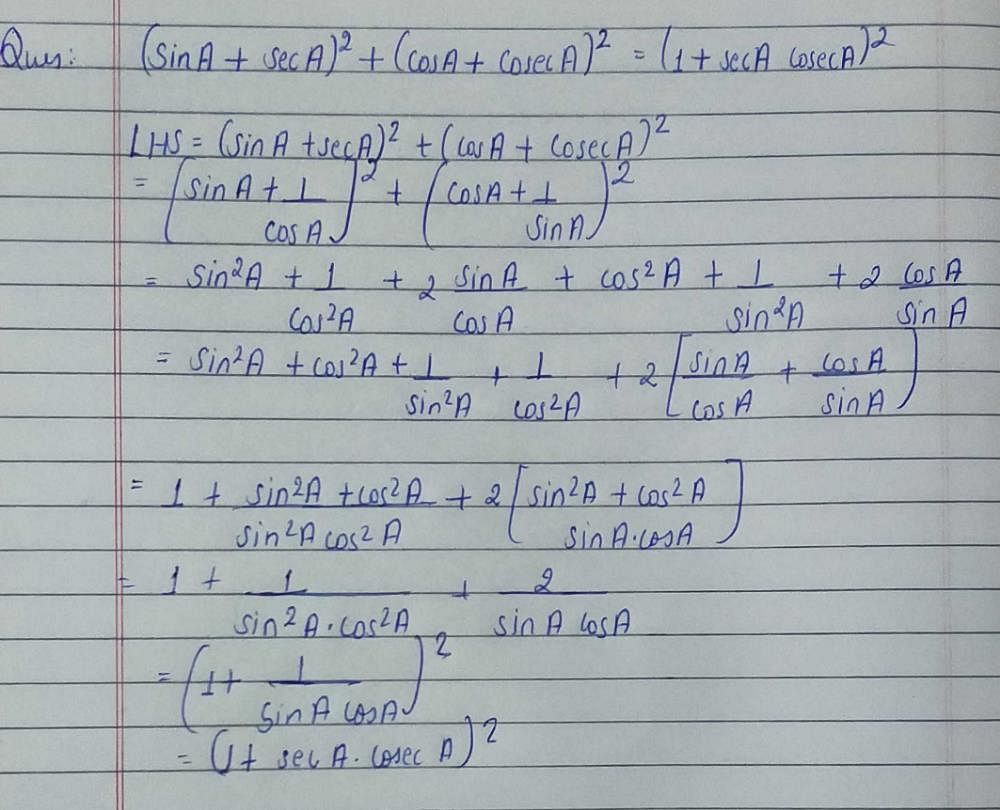 Ques: (sinA + secA)² + (cosA + cosecA)² = (1 + secA cosecA)²
LHS = (sinA + secA)² + (cosA + cosecA)²
= [sinA + 1/cosA]² + (cosA + 1/sinA)²
= sin²A + 1/cos²A + 2 sinA/cosA + cos²A + 1/sin²A + 2 cosA/sinA
= sin²A + cos²A + 1/sin²A + 1/cos²A + 2[sinA/cosA + cosA/sinA]
= 1 + (sin²A + cos²A)/(sin²A cos²A) + 2[(sin²A + cos²A)/(sinA·cosA)]
= 1 + 1/(sin²A·cos²A) + 2/(sinA cosA)
= (1 + 1/(sinA cosA))²
= (1 + secA·cosec A)²